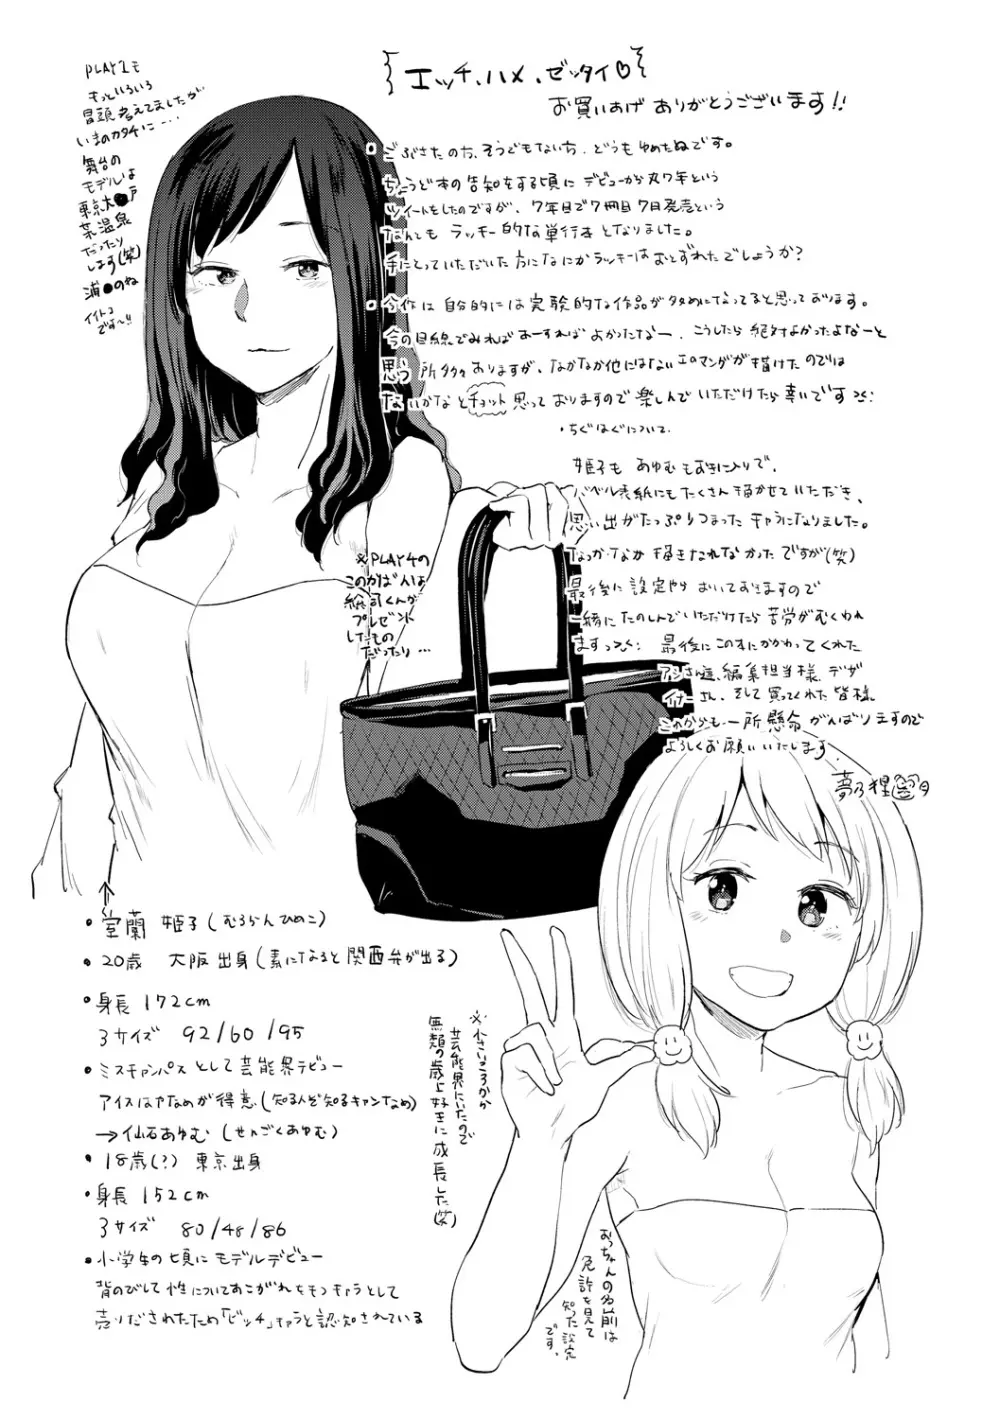 エッチ、ハメ、ゼッタイ♡
お買いあげ ありがとうございます!!
ごぶさたの方、そうでもない方、どうもゆめたぬです。
ちょうど本の告知をする頃にデビューから丸7年という
ツイートをしたのですが、7年目で7冊目7月発売という
なんとも ラッキー的な単行本となりました。
手にとっていただいた方になにかラッキーはおとずれたでしょうか?
今作は自分的には実験的な作品が多めになってると思っております。
今の目線でみればあーすればよかったなー、こうしたら絶対よかったよなーと
思う所多々ありますが、なかなか他にはないエロマンガが描けたのでは
ないかなとチョット思っておりますので楽しんでいただけたら幸いです
・ちぐはぐについて
姫子も あゆむもお気に入りで、
バベル表紙にもたくさん描かせていただき、
思い出がたっぷりつまったキャラになりました。
なかなか描きなれなかったですが(笑)
最後に設定やら おいておきますので
一緒にたのしんでいただけたら苦労がむくわれ
ます 最後にこの本にかかわってくれた
アシさん達、編集担当様、デザ
イナーさん、そして買ってくれた皆様
これからも一所懸命がんばりますので
よろしくお願いいたします
夢乃狸
PLAY1も
もっといろいろ
冒頭考えてましたが
いまのカタチに…
舞台の
モデルは
東京大●戸
某温泉
だったり
します(笑)
浦●のね
イイトコ
です〜!!
※PLAY4の
このかばんは
総司くんが
プレゼント
したもの
だったり…
・室蘭 姫子(むろらんひめこ)
・20歳 大阪出身(素になると関西弁が出る)
・身長 172cm
3サイズ 92/60/95
・ミスキャンパスとして芸能界デビュー
アイスはやなめが得意(知る人ぞ知るキャンなめ)
→仙石あゆむ(せんごくあゆむ)
おっちゃんの名前は
免許を見て
知った設定
です。